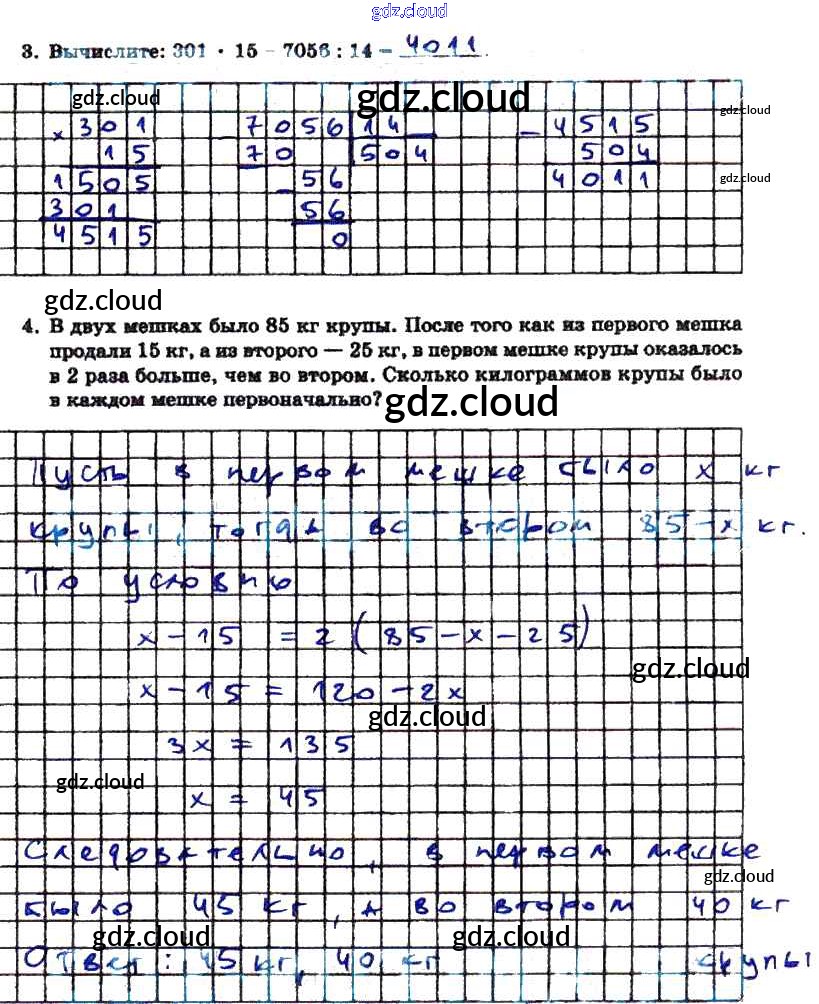 gdz.cloud
3. Вычислите: 301 · 15 – 7056 : 14 = 4011.
gdz.cloud gdz.cloud gdz.cloud
× 301 7056 14 – 4515
15 70 504 504
1505 – 56 4011 gdz.cloud
301 56
4515 0
gdz.cloud
4. В двух мешках было 85 кг крупы. После того как из первого мешка
продали 15 кг, а из второго — 25 кг, в первом мешке крупы оказалось
в 2 раза больше, чем во втором. Сколько килограммов крупы было
в каждом мешке первоначально? gdz.cloud
Пусть в первом мешке было x кг
крупы, тогда во втором 85–x кг.
По условию
x – 15 = 2 (85 – x – 25)
gdz.cloud
x – 15 = 120 – 2x
gdz.cloud
3x = 135
gdz.cloud
x = 45
Следовательно, в первом мешке
gdz.cloud
было 45 кг, а во втором 40 кг
gdz.cloud gdz.cloud
Ответ: 45 кг, 40 кг крупы